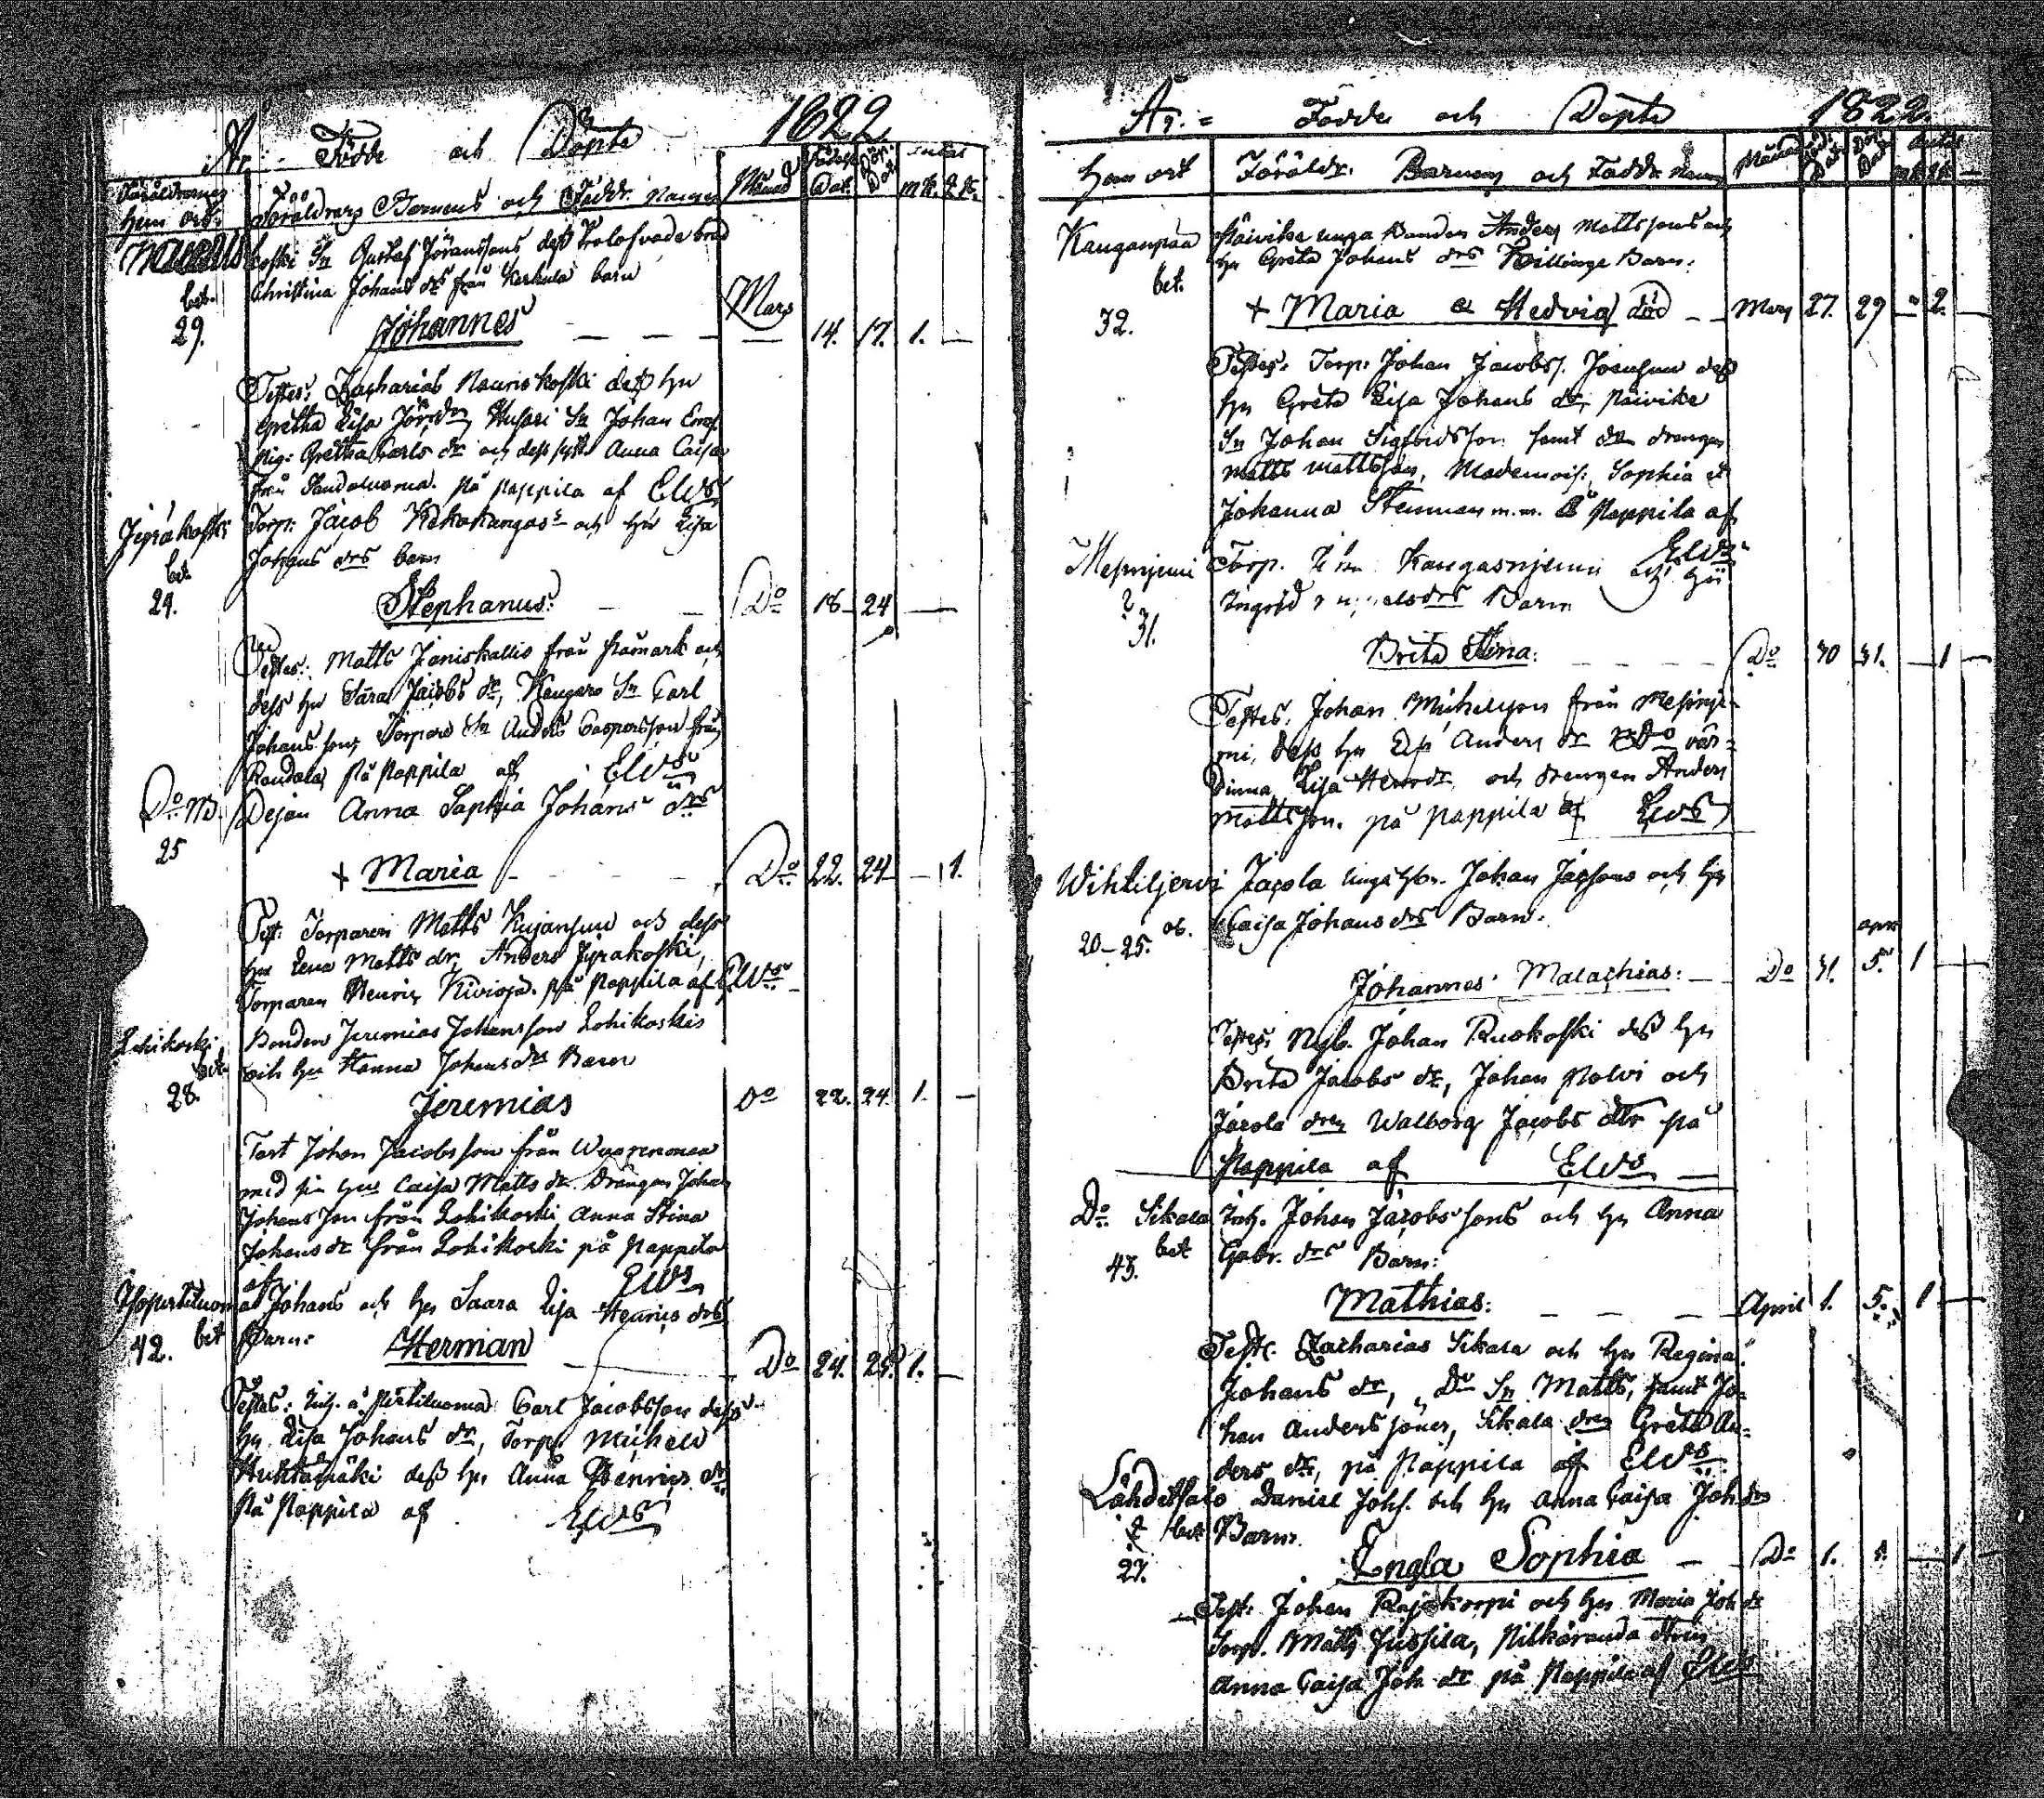 År. Födde och Döpte 1822
Föräldrarnes hem ort Föräldrars Barnens och Fadd. Namn Månad Födelse Dat. Döp. Dat. Antal m.k. q.k.
koski Sn Gustaf Jöranssons dess trolofvade brud
bet. Christina Johans dr från Karhula barn
29. Johannes Mars 14. 17. 1.
Testes: Zacharias Nauriskoski dess hu
Gretha Lisa Jör.dr, Sn Johan
Pig: Gretha Carls dr och dess syst. Anna Caisa
från på Pappila af Elvs
Torp: Jacob Kekokangas och hu Lisa
bet. Johans drs barn
24. Stephanus: Do 18 24
Testes: Matts Janiskallio från Påmark och
dess hu Sara Jacobs dr, Kangars Sn Carl
Johansson, Torpare Sn Anders Caspersson från
på Pappila af Elvs
Do Dejan Anna Saphia Johans drs
25 + Maria Do 22. 24 1.
Test: Torparen Matts Kujansuu och dess
hu Lena Matts dr, Anders Jyrakoski,
Torparen Henric Kivioja på Pappila af Elvs
Lohikoski Bonden Jeremias Johansson Lohikoskis
bet. och hu Hanna Johans drs Barn
28. Jeremias Do 22. 24. 1.
Test Johan Jacobsson från
med sin hu Caisa Matts dr Drängen Johan
Johansson från Lohikoski Anna Stina
Johans dr från Lohikoski på Pappila
af Elvs
Johans och hu Saara Lisa Henrics drs
42. bet Barn: Herman Do 24. 25. 1.
Testes: Inh. å Pertiluoma Carl Jacobsson dess
hu Lisa Johans dr, Torp. Michel
Huhtamäki dess hu Anna Henrics dr
På Pappila af Elvs
År. Födde och Döpte 1822.
Hem ort Föräldr. Barnens och Fadd. Namn Månad Föd. Dat. Döp. Dat. Antal
Kanganpää Päivike unga Bonden Anders Mattssons och
bet. hu Greta Johans drs Tvillinge Barn:
32. + Maria & Hedvig död Mars 27. 29 2.
Testes: Torp: Johan Jacobss. dess
hu Greta Lisa Johans dr, Päivike
Sn Johan Sigfridsson samt drengen
Matts Mattsson, Mademois: Sophia et
Johanna Stenman m.m. På Pappila af
Elvs
Torp. Kangasnjemi och hu
Ingrid drs Barn
31. Brita Stina: Do 30 31. 1
Testes: Johan Michelsson från
mi, dess hu Anders dr Do vär-
dinna Lisa dr och drengen Anders
Mattsson. på Pappila af Elvs
Wihteljervi Jacola unga hb. Johan Jacssons och hu
20-25. Caisa Johans drs Barn.
Johannes Malachias: Do 31. apr 5. 1
Testes: Nyb. Johan Ruokoski dess hu
Brita Jacobs dr, Johan Polvi och
Jacola drn Walborg Jacobs dtr på
Pappila af Elvs
Do Sikala Inh. Johan Jacobssons och hu Anna
bet Gabr. drs Barn:
43. Mathias: April 1. 5. 1
Test: Zacharias Sikala och hu Regina
Johans dr, Do Sn Matts, samt Jo-
han Anderssoner, Sikala drn Greta An-
ders dr, på Pappila af Elvs
Lähdetsalo Daniel Johs. och hu Anna Caisa Joh. drs
bet Barn
27. Engla Sophia Do 1. 1
Test: Johan Rajakorpi och hu Maria Joh dr
Torp. Matts Jussila,
Anna Caisa Joh. dr på Pappila af Elvs